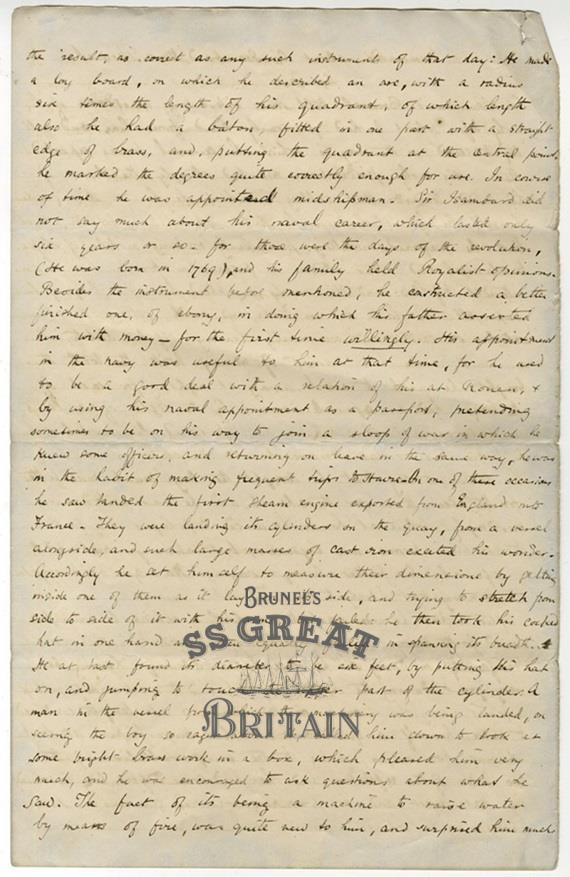 the result, as correct as any such instrument of that day: He made
a long board, on which he described an arc, with a radius
six times the length of his quadrant, of which length
also he had a baton, fitted in one part with a straight
edge of brass, and, putting the quadrant at the central point,
he marked the degrees quite correctly enough for use. In course
of time he was appointed midshipman. Sir Isambard did
not say much about his naval career, which lasted only
six years or so – for those were the days of the revolution,
(He was born in 1769), and his family held Royalist opinions.
Besides the instrument before mentioned, he constructed a better
finished one, of ebony, in doing which his father assisted
him with money – for the first time willingly. His appointment
in the navy was useful to him at that time, for he used
to be a good deal with a relation of his at Rouen, &
by using his naval appointment as a passport, pretending
sometimes to be on his way to join a sloop of war in which he
knew some officers, and returning on leave in the same way, he was
in the habit of making frequent trips to Havre – On one of these occasions
he saw landed the first steam engine exported from England into
France – They were landing its cylinders on the quay, from a vessel
alongside, and such large masses of cast iron excited his wonder –
Accordingly he set himself to measure their dimensions by getting
inside one of them as it lay side, and trying to stretch from
side to side of it with his he then took his cocked
hat in one hand in spanning its breadth.
He at last found its diameter to be six feet, by putting his hat
on, and jumping to touch part of the cylinder. A
man in the vessel from which the was being landed, on
seeing the boy so him down to look at
some bright brass work in a box, which pleased him very
much, and he was encouraged to ask questions about what he
saw. The fact of its being a machine to raise water
by means of fire, was quite new to him, and surprised him much
BRUNEL'S
SS GREAT
BRITAIN